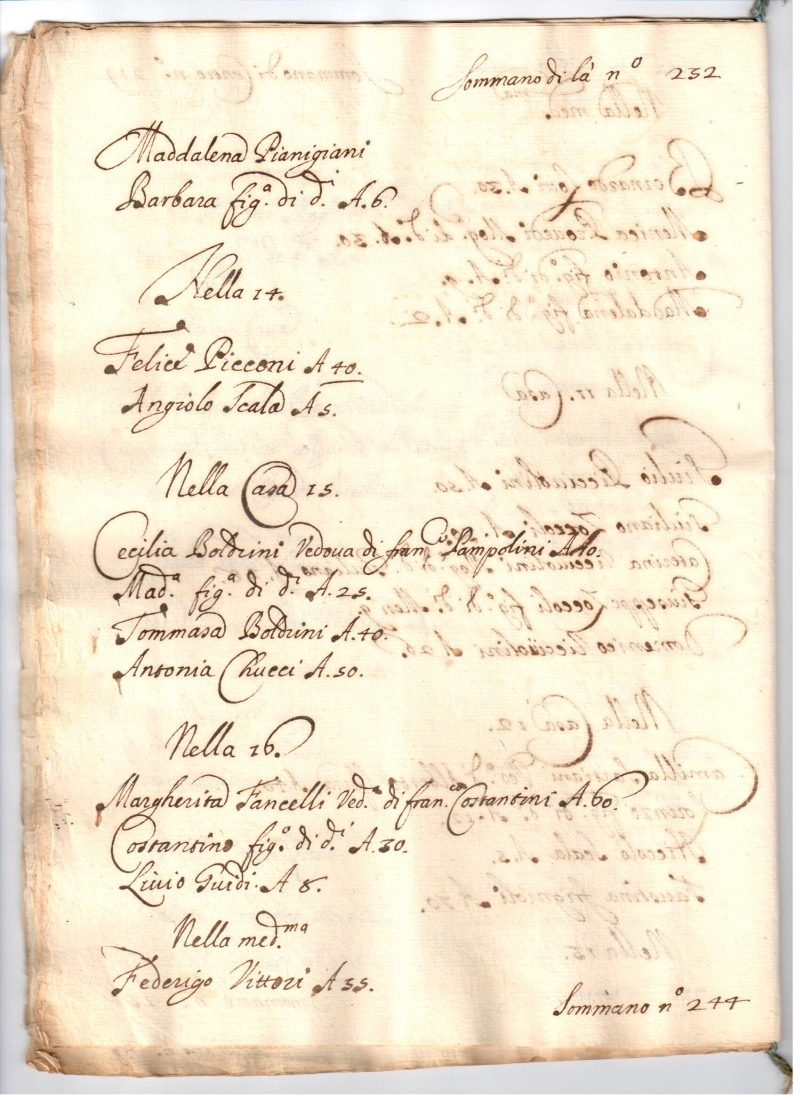 Sommano di là nº 232
Maddalena Pianigiani
Barbara figª. di dⁱ. A. 6.
Nella 14.
Felice Picconi A 40.
Angiolo Scala A 5.
Nella Casa 15.
Cecilia Boldrini Vedova di franᶜᵒ Pampolini A. 40.
Madª. figª. di dⁱ. A. 25.
Tommasa Boldrini A. 40.
Antonia Chucci A. 50.
Nella 16.
Margherita Fancelli Vedª. di franᶜᵒ. Costantini A. 60.
Costantino figº. di dⁱ A. 30.
Livio Guidi. A 8.
Nella medᵐᵃ.
Federigo Vittori A 55.
Sommano nº 244